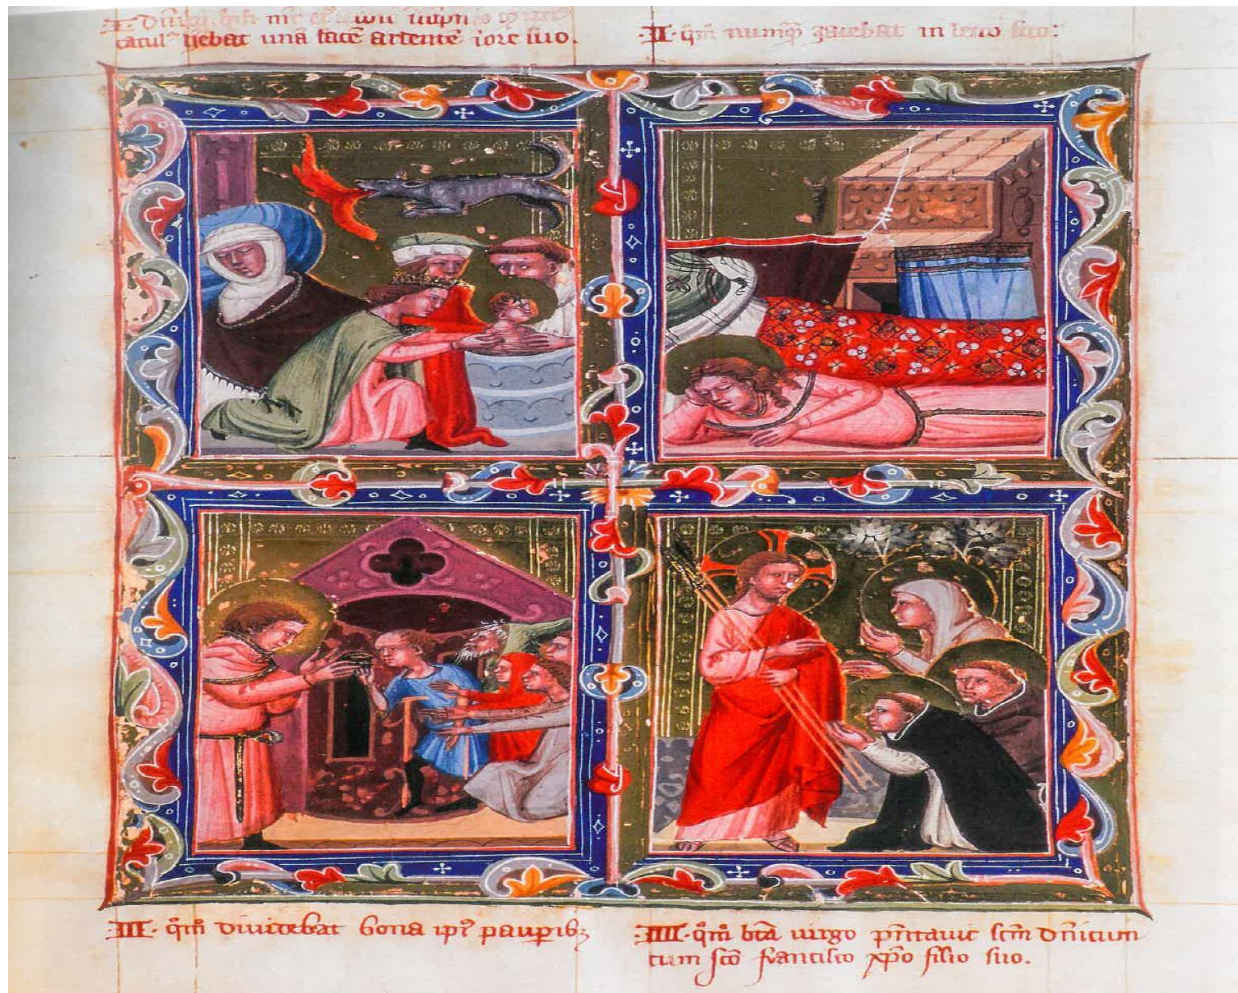 una facē ardentē ī ore suo.
·II· q̄m̄ numq̄ iacebat in lecto suo:
·III· q̄m̄ diuidebat bona ip̄i paup̄ibꝫ
·IIII· q̄m̄ bt̄a uirgo p̄n̄tauit sc̄m dn̄icum
cum sc̄o francisco xp̄o filio suo.